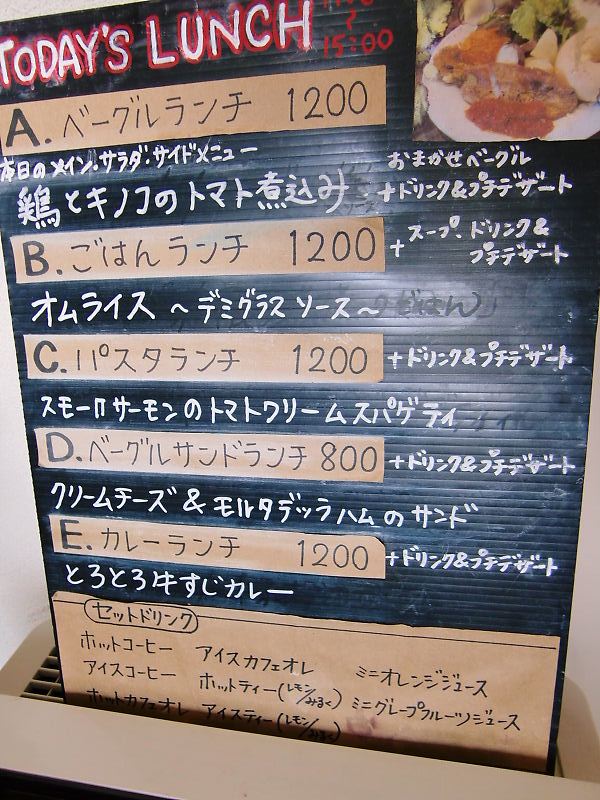 TODAY'S LUNCH
15:00
A. ベーグルランチ 1200
本日のメイン・サラダ・サイドメニュー
おまかせベーグル
鶏とキノコのトマト煮込み +ドリンク&プチデザート
B. ごはんランチ 1200 + スープ、ドリンク&
プチデザート
オムライス ～デミグラスソース～
C. パスタランチ 1200 +ドリンク&プチデザート
スモークサーモンのトマトクリームスパゲティ
D. ベーグルサンドランチ 800 +ドリンク&プチデザート
クリームチーズ&モルタデッラハムのサンド
E. カレーランチ 1200 +ドリンク&プチデザート
とろとろ牛すじカレー
セットドリンク
ホットコーヒー アイスカフェオレ ミニオレンジジュース
アイスコーヒー ホットティー(レモン/みるく) ミニグレープフルーツジュース
ホットカフェオレ アイスティー(レモン/みるく)